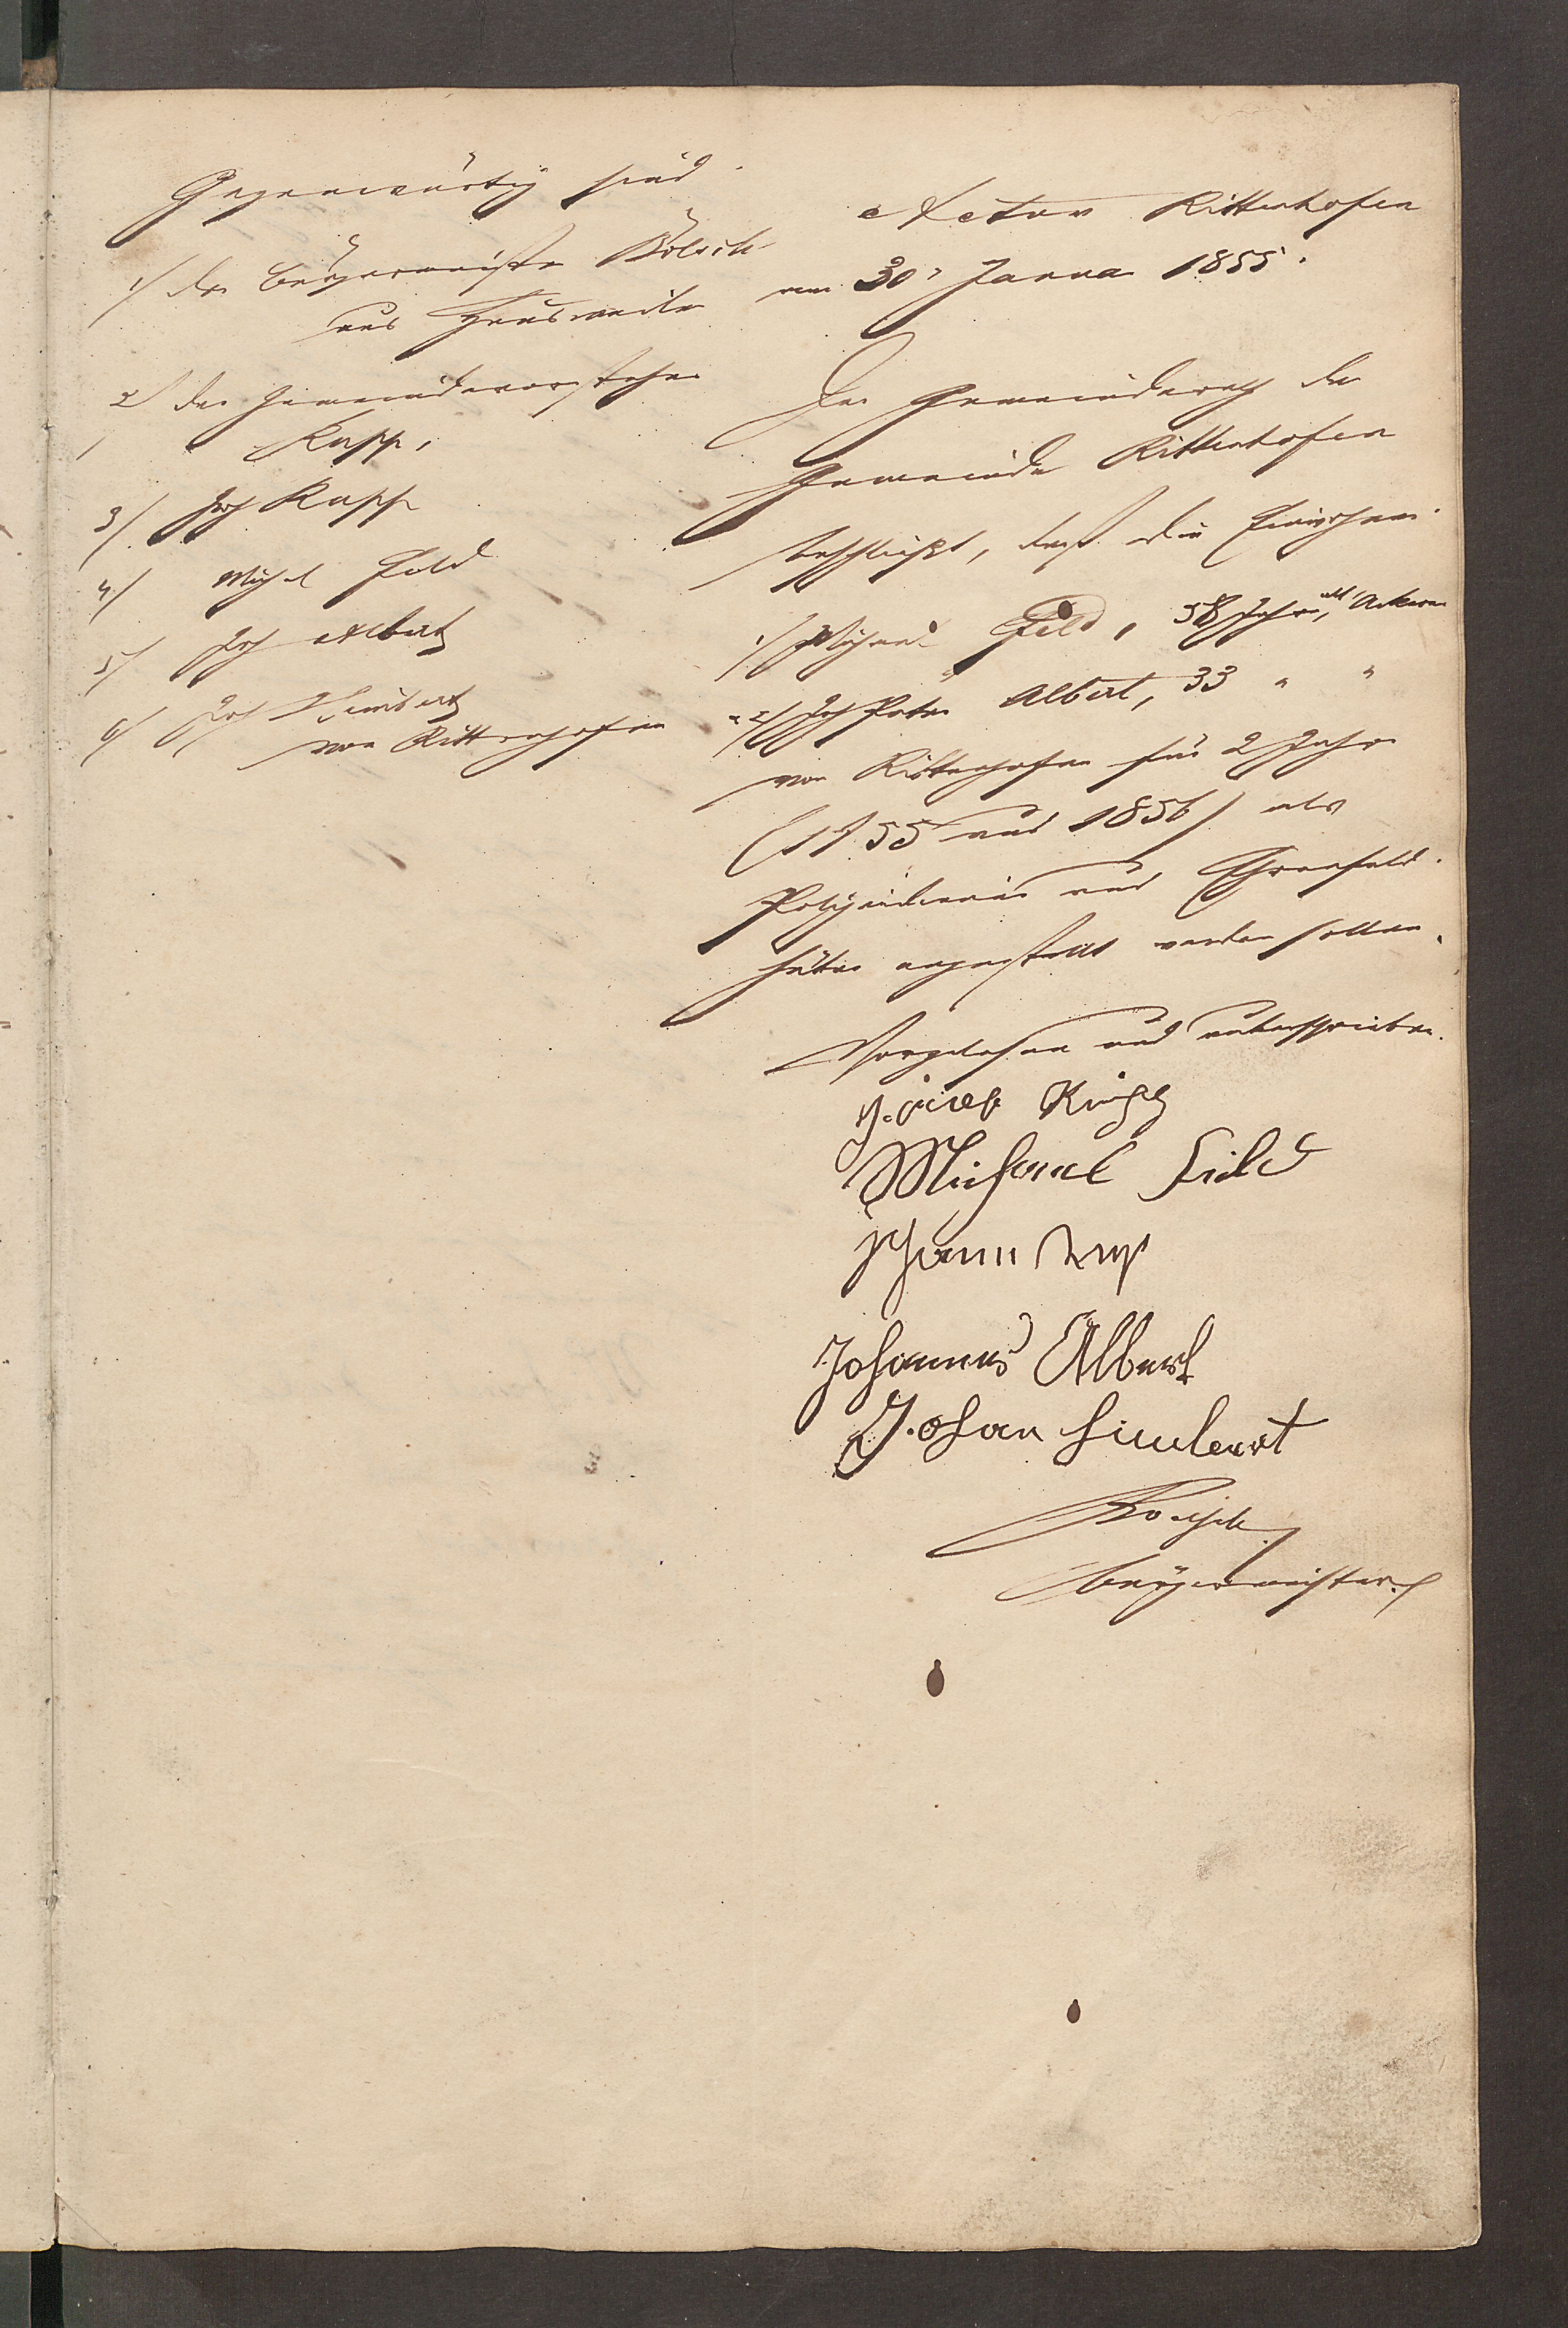 Gegenwärtig sind
1/ der Bürgermeister Bölsch
aus Heusweiler
2/ der Gemeindevorsteher
Rupp,
3/ Joh Rupp
4/ Michel Feld
5/ Joh Albert
6/ Joh Himbert
von Rittenhofen
Actum Rittenhofen
am 30. Januar 1855.
Der Gemeinderath der
Gemeinde Rittenhofen
beschließt, daß die
1/ Michael Feld, 58 Jahre alt, Ackerer
2/ Joh Peter Albert, 33 " "
von Rittenhofen für 2 Jahre
(1855 und 1856) als
Polizeidiener und Ehrenfeld-
hüter angestellt werden sollen.
Vorgelesen und unterschrieben.
Michael Feld
Johann Rupp
Johannes Albert
Johan Himbert
Bürgermeister